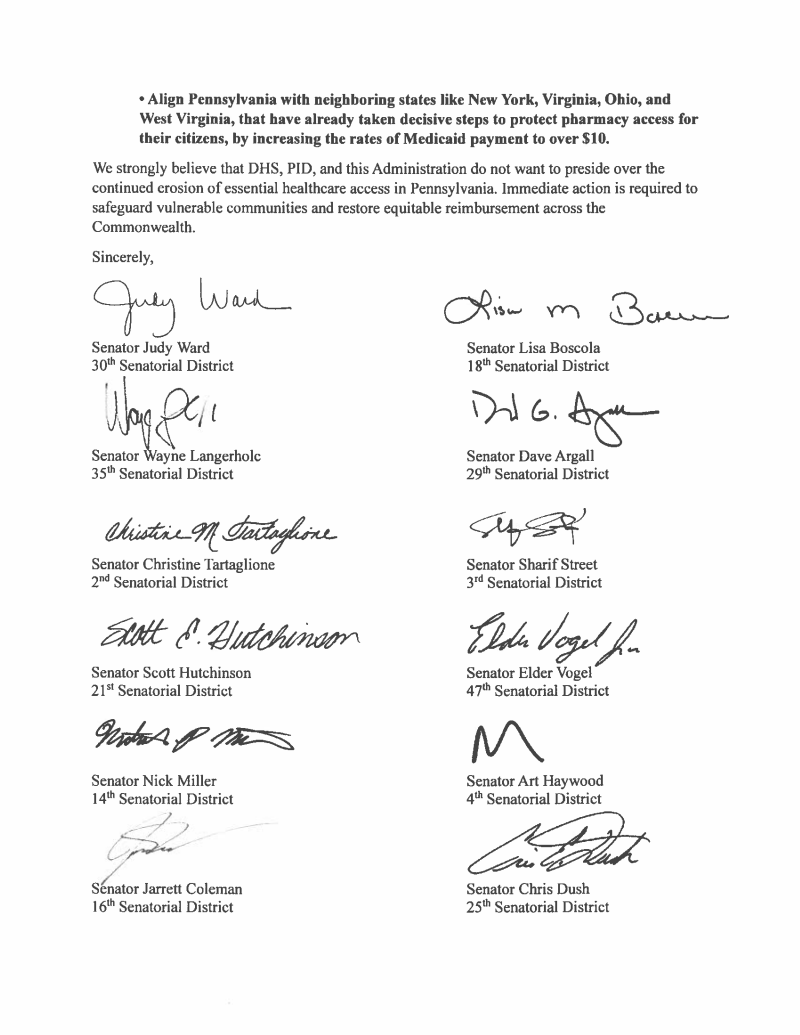 • Align Pennsylvania with neighboring states like New York, Virginia, Ohio, and
West Virginia, that have already taken decisive steps to protect pharmacy access for
their citizens, by increasing the rates of Medicaid payment to over $10.
We strongly believe that DHS, PID, and this Administration do not want to preside over the
continued erosion of essential healthcare access in Pennsylvania. Immediate action is required to
safeguard vulnerable communities and restore equitable reimbursement across the
Commonwealth.
Sincerely,
Judy Ward
Lisa M Boscola
Senator Judy Ward
30th Senatorial District
Senator Lisa Boscola
18th Senatorial District
Senator Wayne Langerholc
35th Senatorial District
Senator Dave Argall
29th Senatorial District
Christine M Tartaglione
Senator Christine Tartaglione
2nd Senatorial District
Senator Sharif Street
3rd Senatorial District
Scott E. Hutchinson
Elder Vogel Jr
Senator Scott Hutchinson
21st Senatorial District
Senator Elder Vogel
47th Senatorial District
Senator Nick Miller
14th Senatorial District
Senator Art Haywood
4th Senatorial District
Cris E Dush
Senator Jarrett Coleman
16th Senatorial District
Senator Chris Dush
25th Senatorial District